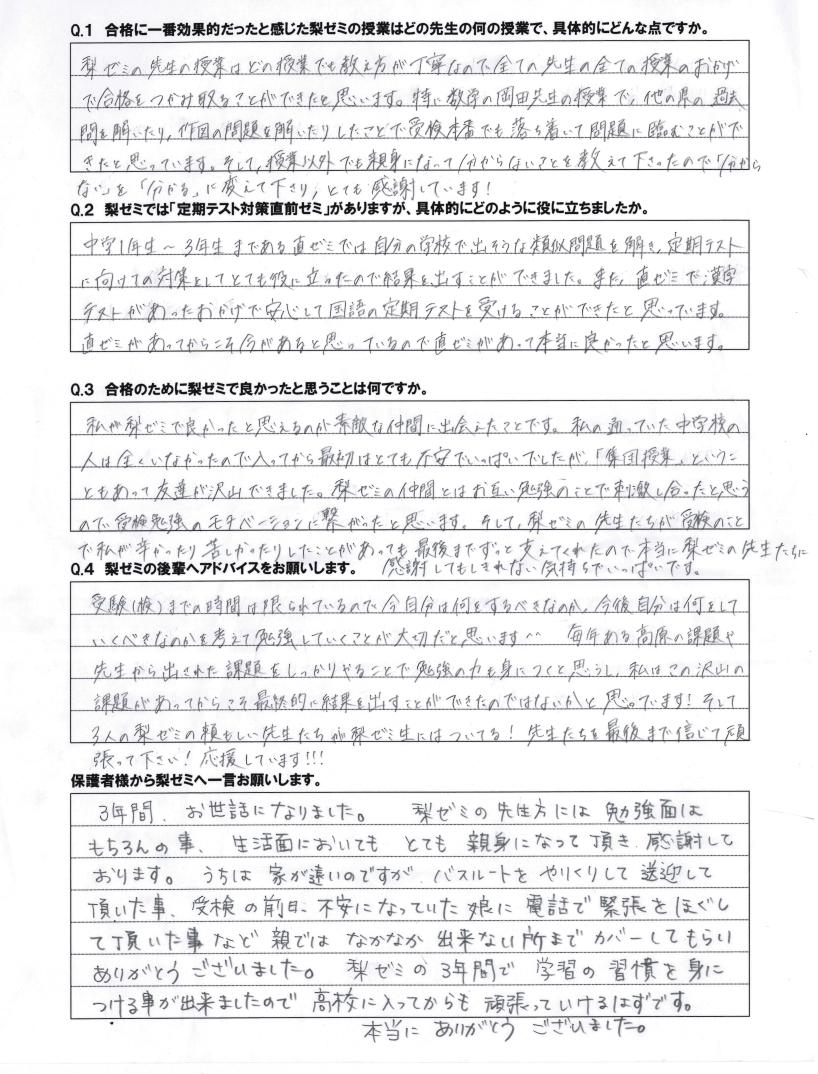 Q.1 合格に一番効果的だったと感じた梨ゼミの授業はどの先生の何の授業で、具体的にどんな点ですか。
梨ゼミの先生の授業はどの授業でも教え方が丁寧なので全ての先生の全ての授業のおかげ
で合格をつかみ取ることができたと思います。特に数学の岡田先生の授業で、他の県の過去
問を解いたり、作図の問題を解いたりしたことで受検本番でも落ち着いて問題に臨むことがで
きたと思っています。そして、授業以外でも親身になって分からないことを教えて下さったので「分から
ない」を「分かる」に変えて下さり、とても感謝しています!
Q.2 梨ゼミでは「定期テスト対策直前ゼミ」がありますが、具体的にどのように役に立ちましたか。
中学1年生~3年生まである直ゼミでは自分の学校で出そうな類似問題を解き、定期テスト
に向けての対策としてとても役に立ったので結果を出すことができました。また、直ゼミで漢字
テストがあったおかげで安心して国語の定期テストを受けることができたと思っています。
直ゼミがあってからこそ今があると思っているので直ゼミがあって本当に良かったと思います。
Q.3 合格のために梨ゼミで良かったと思うことは何ですか。
私が梨ゼミで良かったと思えるのが素敵な仲間に出会えたことです。私の通っていた中学校の
人は全くいなかったので入ってから最初はとても不安でいっぱいでしたが、「集団授業」というこ
ともあって友達が沢山できました。梨ゼミの仲間とはお互い勉強のことで刺激し合ったと思う
ので受検勉強のモチベーションに繋がったと思います。そして、梨ゼミの先生たちが受検のこと
で私が辛かったり苦しかったりしたことがあっても最後までずっと支えてくれたので本当に梨ゼミの先生たちに
感謝してもしきれない気持ちでいっぱいです。
Q.4 梨ゼミの後輩へアドバイスをお願いします。
受験(検)までの時間は限られているので今自分は何をするべきなのか、今後自分は何をして
いくべきなのかを考えて勉強していくことが大切だと思います^^ 毎年ある高原の課題や
先生から出された課題をしっかりやることで勉強の力も身につくと思うし、私はこの沢山の
課題があってからこそ最終的に結果を出すことができたのではないかと思っています! そして
3人の梨ゼミの頼もしい先生たちが梨ゼミ生にはついてる! 先生たちを最後まで信じて頑
張って下さい! 応援しています!!!
保護者様から梨ゼミへ一言お願いします。
3年間、お世話になりました。 梨ゼミの先生方には 勉強面は
もちろんの事、生活面においても とても 親身になって頂き、感謝して
おります。 うちは 家が遠いのですが、バスルートを やりくりして 送迎して
頂いた事、受検の前日、不安になっていた娘に 電話で 緊張をほぐし
て頂いた事など 親では なかなか 出来ない所まで カバーしてもらい
ありがとうございました。 梨ゼミの3年間で 学習の習慣を身に
つける事が出来ましたので 高校に入ってからも 頑張っていけるはずです。
本当に ありがとう ございました。